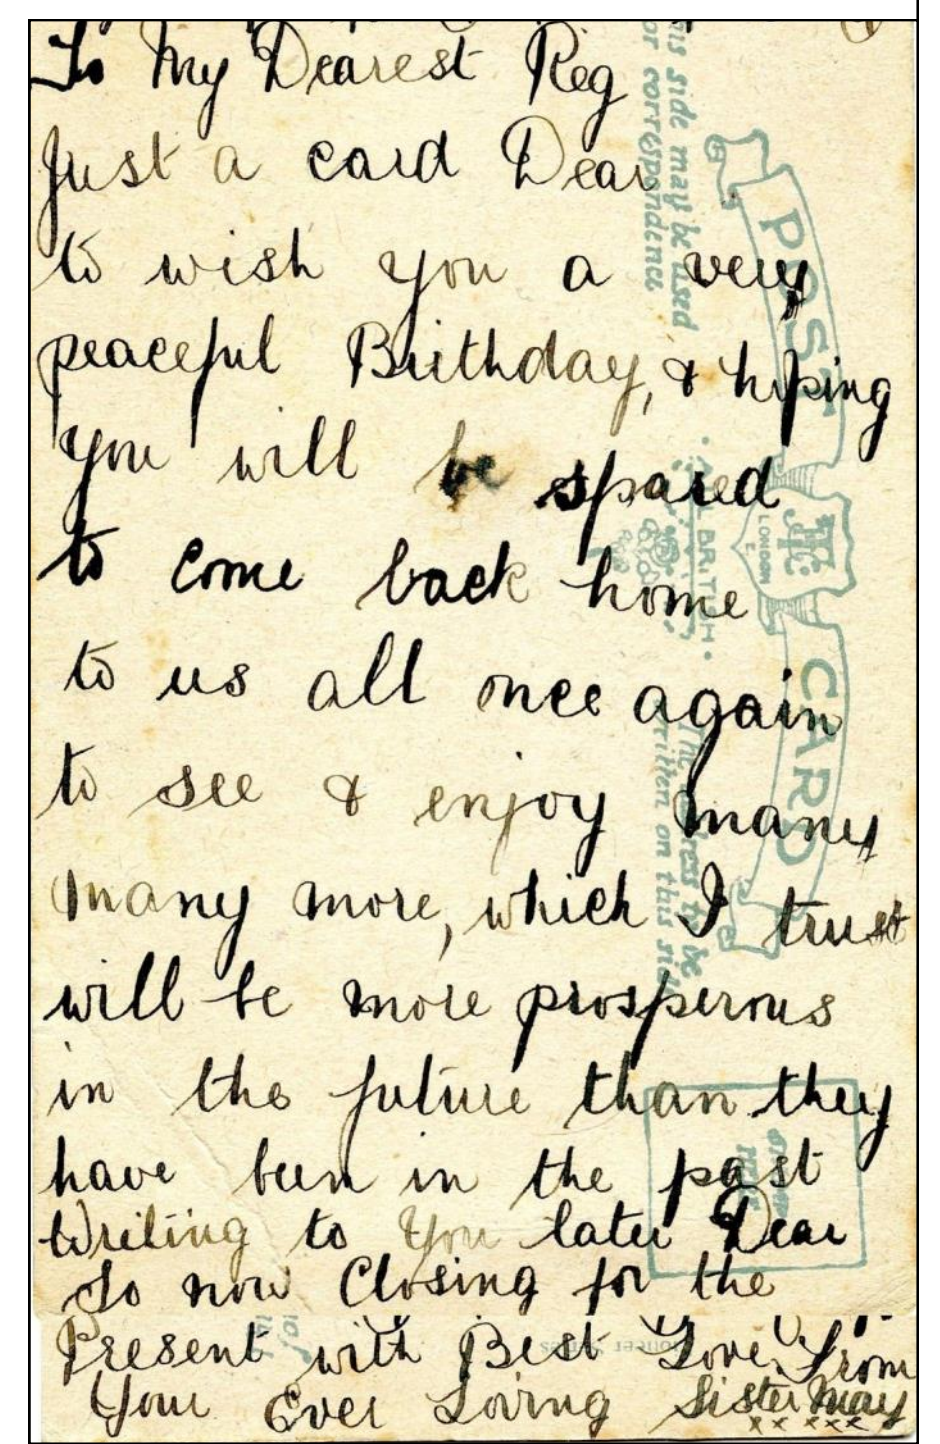 To My Dearest Reg
Just a card Dear
to wish you a very
peaceful Birthday, & hoping
you will be spared
to come back home
to us all once again
to see & enjoy many
many more, which I trust
will be more prosperous
in the future than they
have been in the past
Writing to You later Dear
So now Closing for the
Present with Best Love From
Your Ever Loving Sister May
x x x x x
This side may be used
for correspondence
POST CARD
ALL BRITISH
LONDON
E.
The address to be
written on this side